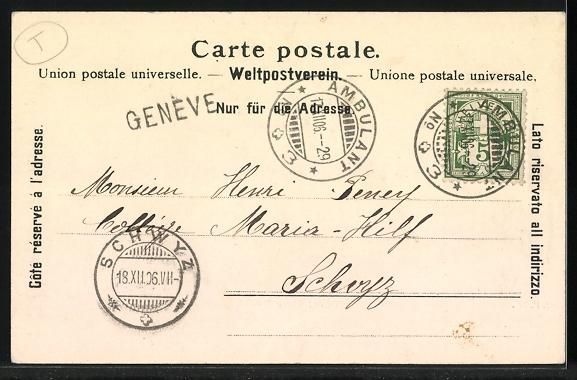 T
Carte postale.
Union postale universelle. — Weltpostverein. — Unione postale universale.
Nur für die Adresse.
GENÈVE
AMBULANT Nº 3
AMBULANT Nº 3
5
Côte réservé à l'adresse.
Lato riservato all indirizzo.
Monsieur Henri
Collège Maria-Hilf
Schwyz
SCHWYZ
18.XII.06.VII